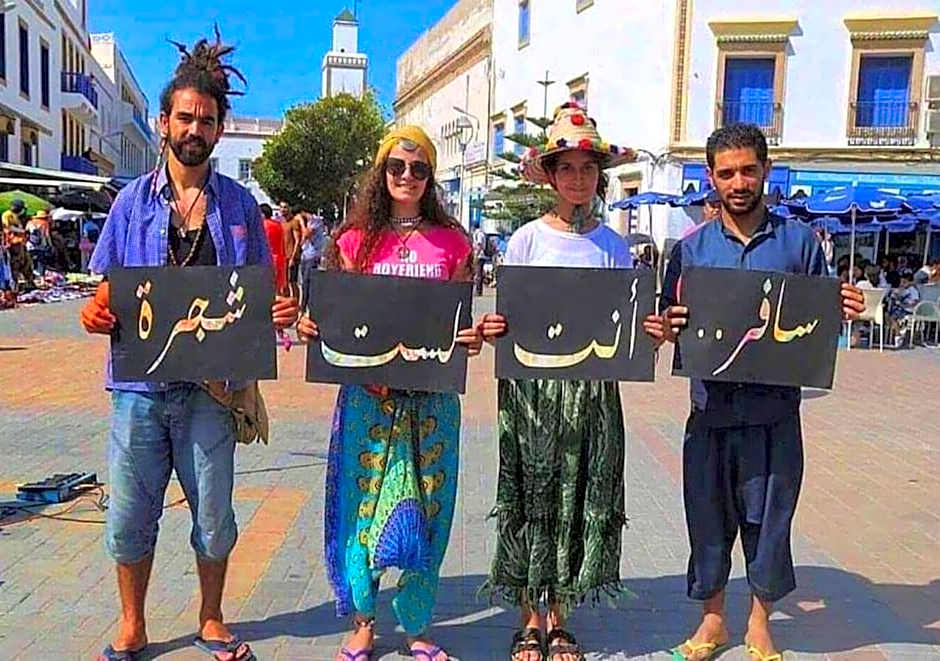 سافر.. أنت لست شجرة
NO
BOYFRIEND